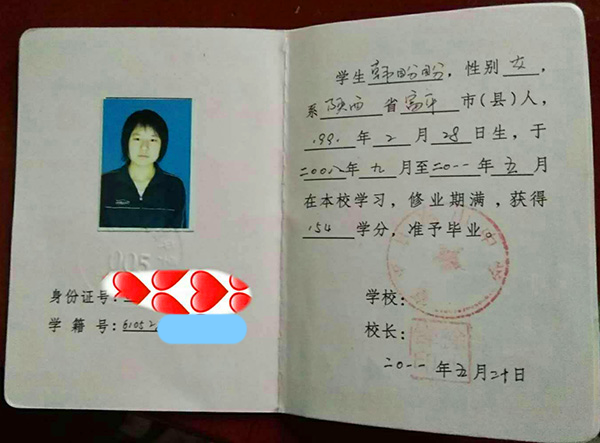 身份证号:
学 籍 号:61052
学生韩盼盼,性别女,
系 陕西 省富平 市(县)人,
1991 年 2 月 28 日生,于
二00八年 九 月至二0一一 年 五 月
在本校学习,修业期满,获得
154 学分,准予毕业。
学校:
校长:
二0一一 年 五 月 二十日